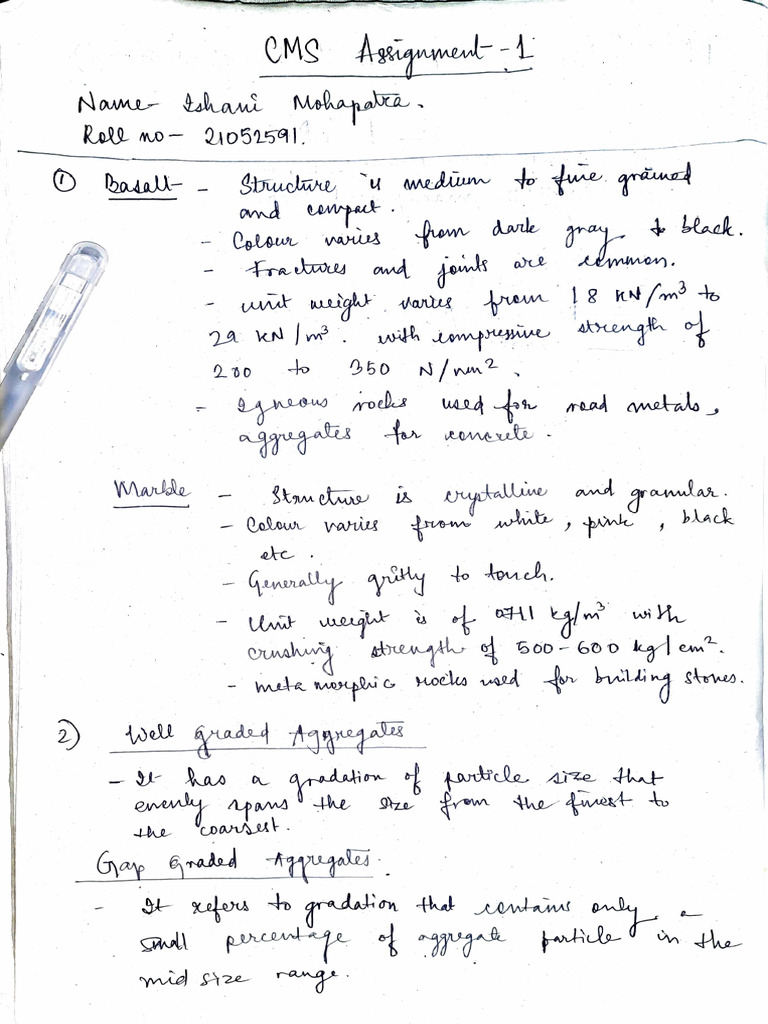 CMS Assignment-1
Name- Ishani Mohapatra.
Roll no- 21052591.
① Basalt - Structure is medium to fine grained
and compact.
- Colour varies from dark gray to black.
- Fractures and joints are common.
- unit weight varies from 18 KN/m³ to
29 KN/m³. with compressive strength of
200 to 350 N/mm².
- Igneous rocks used for road metals,
aggregates for concrete.
Marble - Structure is crystalline and granular.
- Colour varies from white, pink, black
etc.
- Generally gritly to touch.
- Unit weight is of kg/m³ with
crushing strength of 500-600 kg/cm².
- meta morphic rocks used for building stones.
2) Well graded Aggregates
- It has a gradation of particle size that
evenly spans the size from the finest to
the coarsest.
Gap Graded Aggregates.
- It refers to gradation that contains only a
small percentage of aggregate particle in the
mid size range.